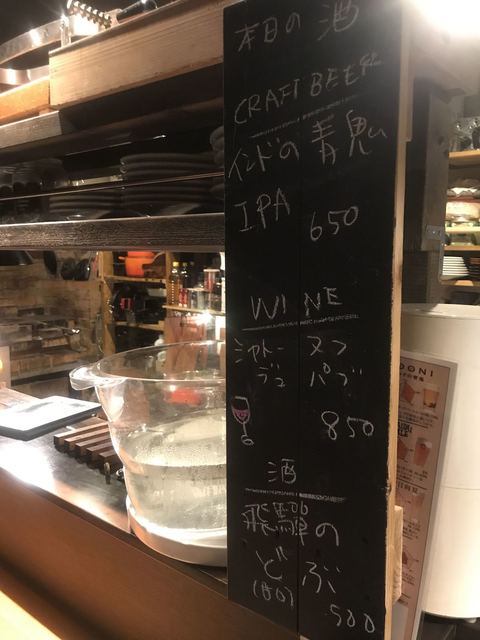 本日の酒
CRAFT BEER
インドの青鬼
IPA 650
WINE
シャトー ヌフ
デュ パプ
850
酒
飛騨の
どぶ
500
DONI